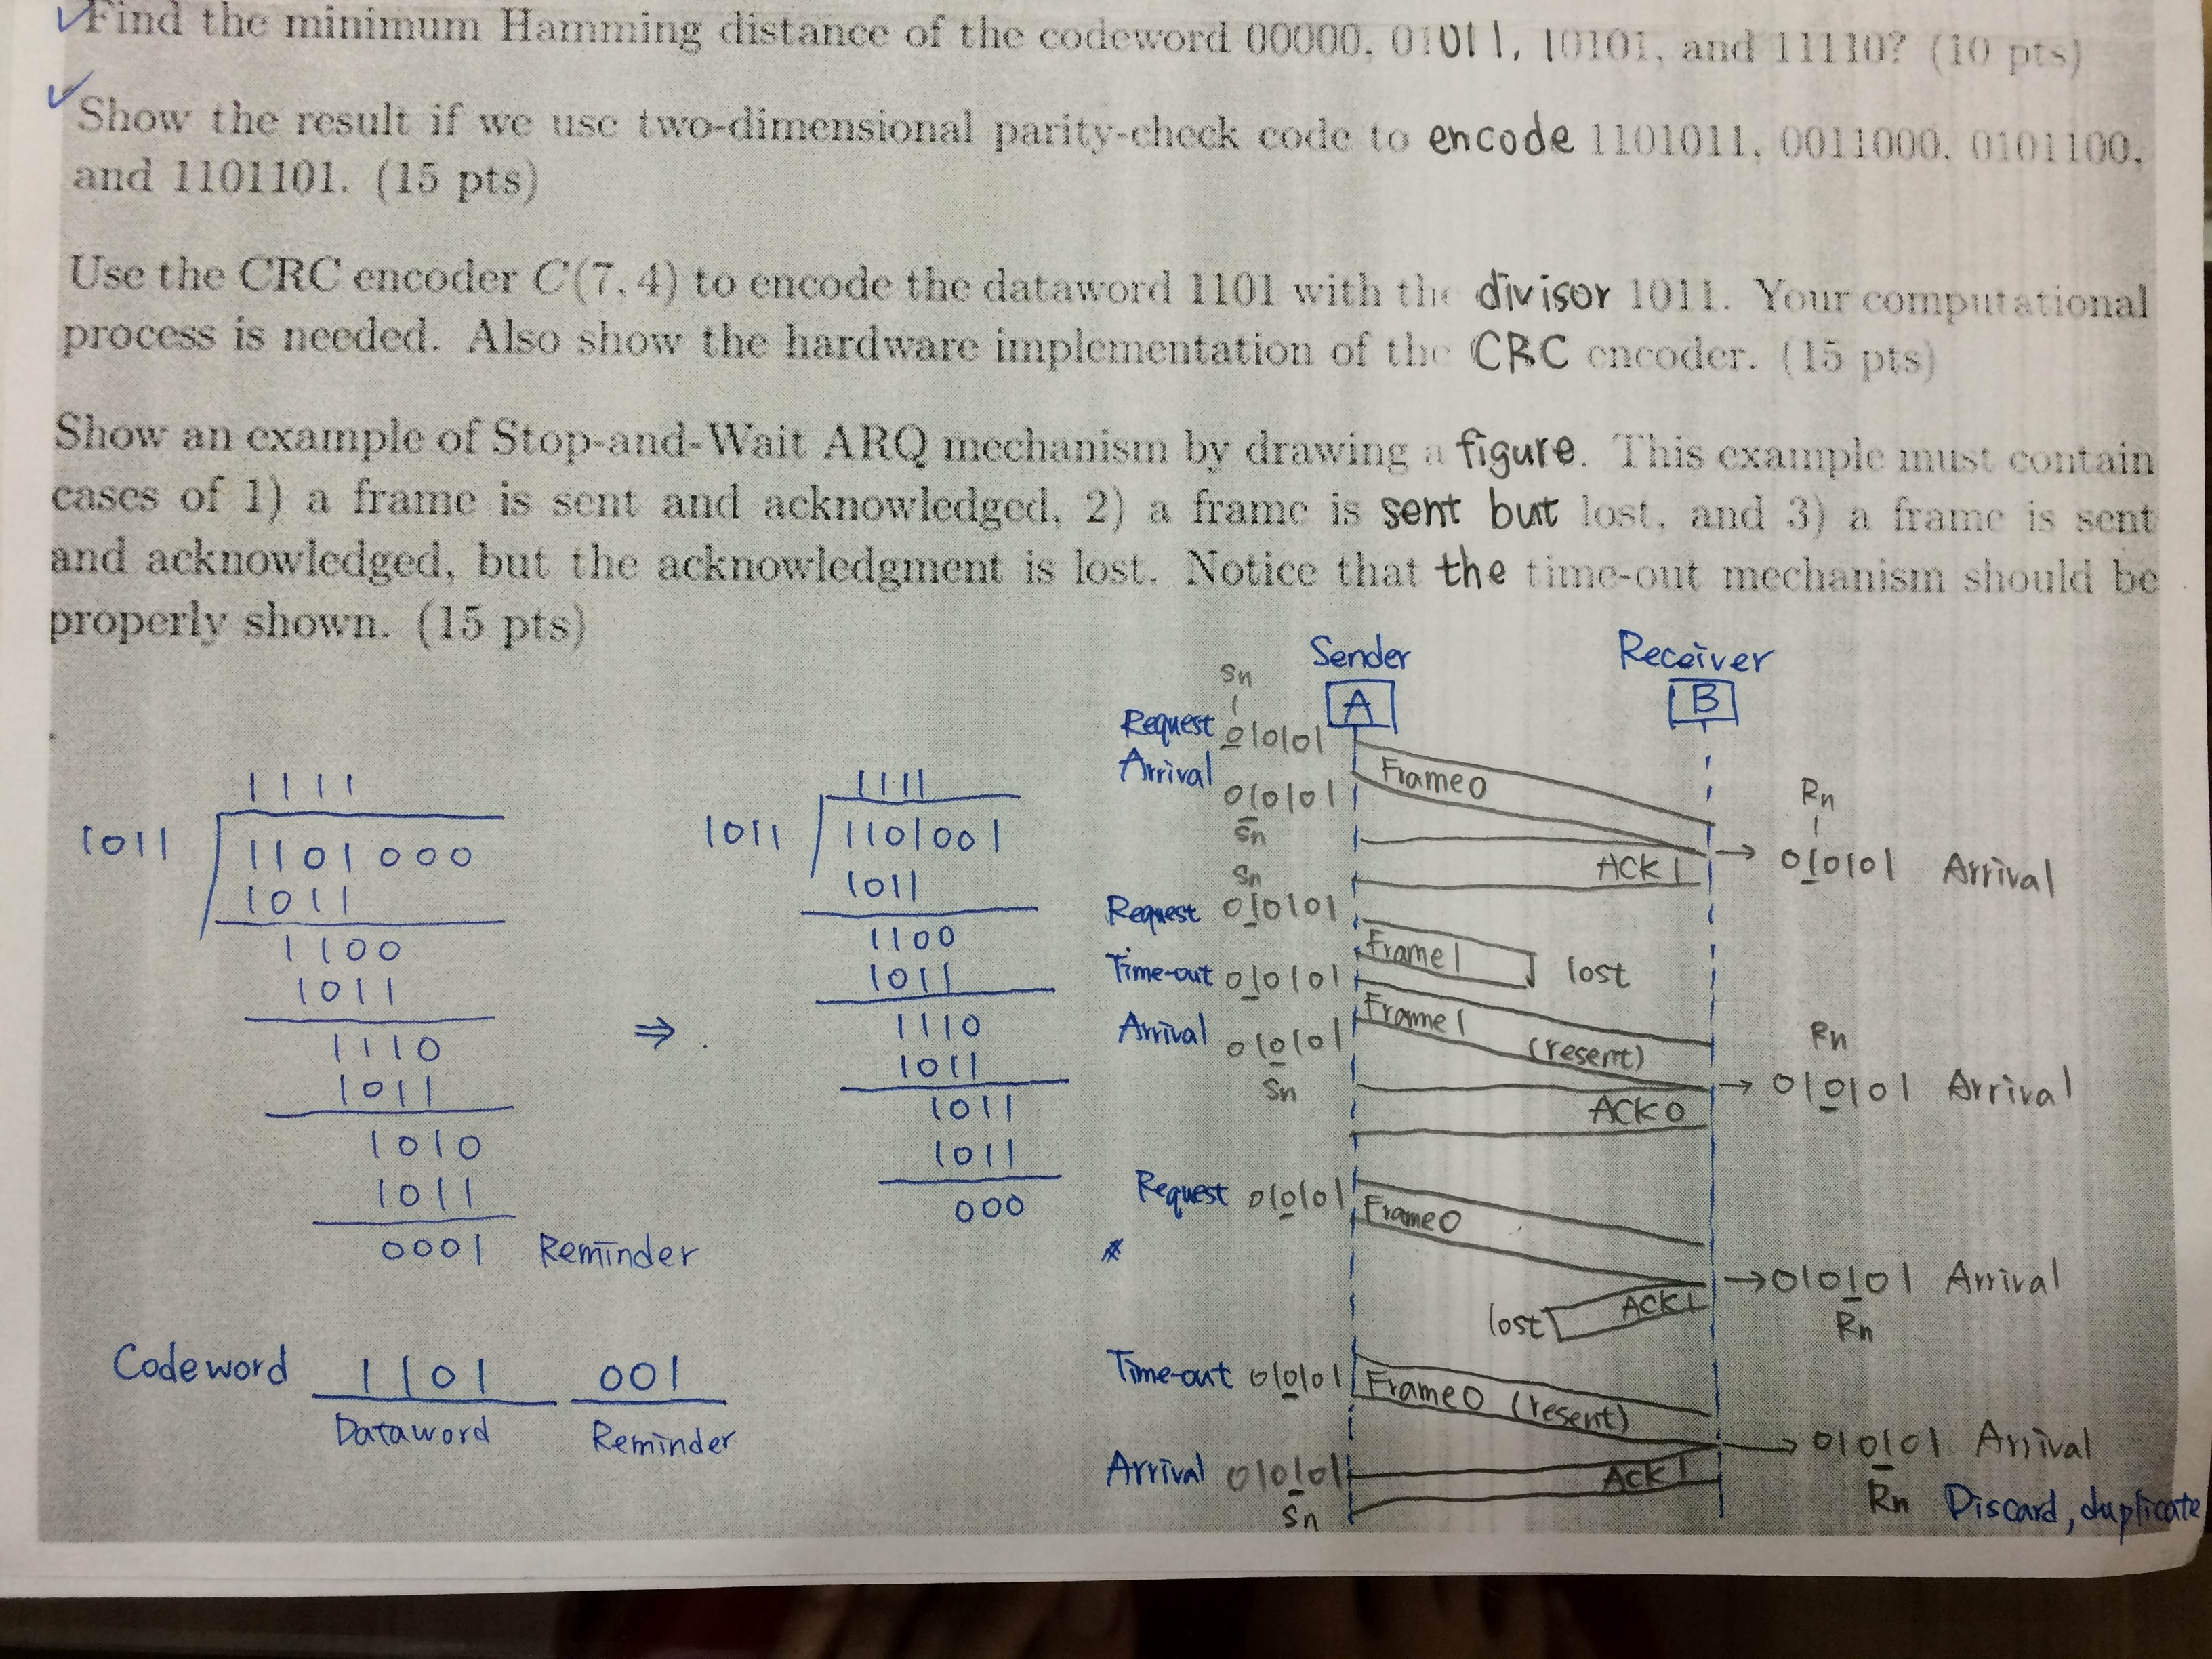 Find the minimum Hamming distance of the codeword 00000, 01011, 10101, and 11110? (10 pts)
Show the result if we use two-dimensional parity-check code to encode 1101011, 0011000, 0101100,
and 1101101. (15 pts)
Use the CRC encoder C(7,4) to encode the dataword 1101 with the divisor 1011. Your computational
process is needed. Also show the hardware implementation of the CRC encoder. (15 pts)
Show an example of Stop-and-Wait ARQ mechanism by drawing a figure. This example must contain
cases of 1) a frame is sent and acknowledged, 2) a frame is sent but lost, and 3) a frame is sent
and acknowledged, but the acknowledgment is lost. Notice that the time-out mechanism should be
properly shown. (15 pts)
1111
1011 1101000
1011
1100
1011
1110
1011
1010
1011
0001 Reminder
Codeword 1101 001
Dataword Reminder
⇒
1111
1011 1101001
1011
1100
1011
1110
1011
1011
1011
000
Sender Receiver
A B
Sn
Request 010101
Arrival Frame 0
010101
Sn
Rn
ACK 1 → 010101 Arrival
Sn
Request 010101
Frame 1 lost
Time-out 010101
Frame 1 (resent)
Arrival 010101
Sn
Rn
ACK 0 → 010101 Arrival
Request 010101 Frame 0
→ 010101 Arrival
lost ACK 1 Rn
Time-out 010101 Frame 0 (resent)
→ 010101 Arrival
Arrival 010101 ACK 1
Sn
Rn Discard, duplicate